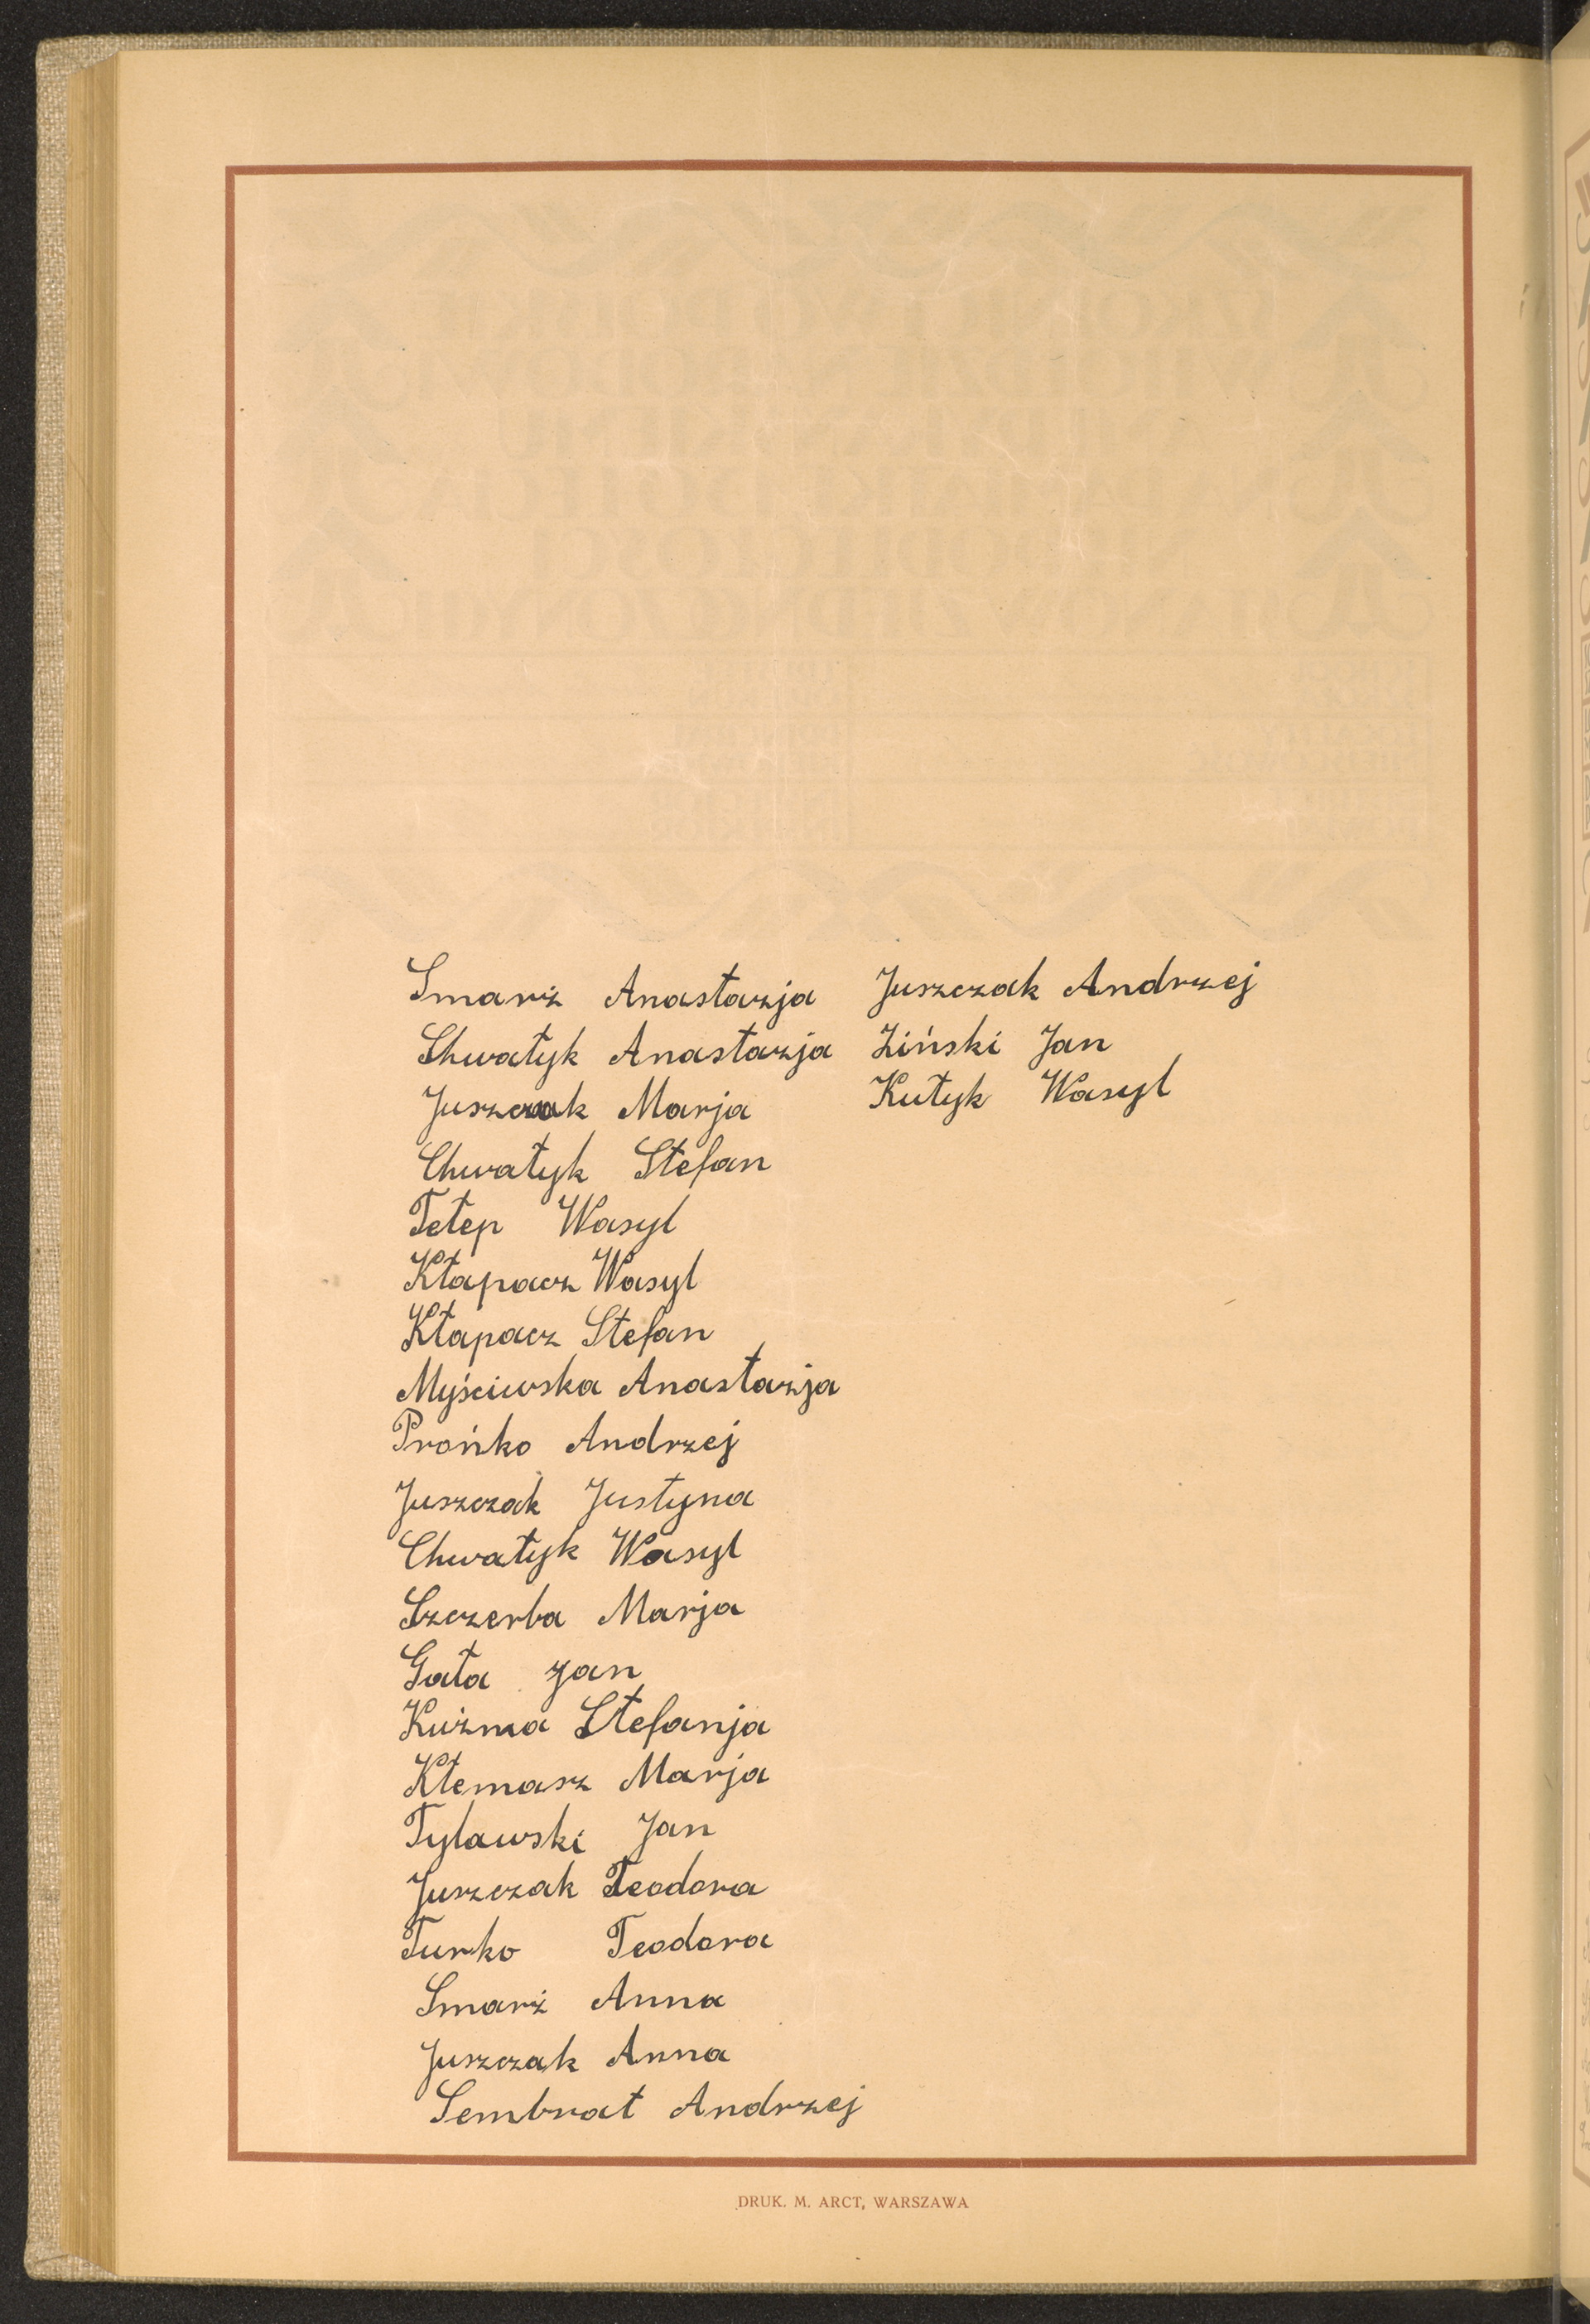 Smarż Anastazja
Chwałyk Anastazja
Juszczak Marja
Chwałyk Stefan
Tetep Wasyl
Kłapacz Wasyl
Kłapacz Stefan
Myściwska Anastazja
Prońko Andrzej
Juszczak Justyna
Chwałyk Wasyl
Szczerba Marja
Gała Jan
Kuźma Stefanja
Kłemasz Marja
Tylawski Jan
Juszczak Teodora
Turko Teodora
Smarż Anna
Juszczak Anna
Sembrat Andrzej
Juszczak Andrzej
Ziński Jan
Kutyk Wasyl
DRUK. M. ARCT, WARSZAWA